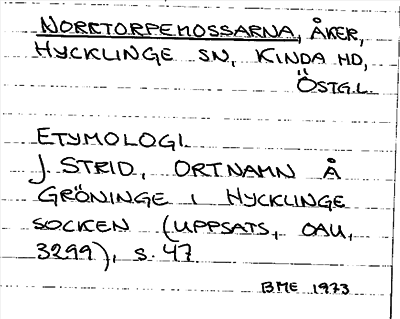 NORRTORPEMOSSARNA, ÅKER,
HYCKLINGE SN, KINDA HD,
ÖSTG.L.
ETYMOLOGI.
J. STRID, ORTNAMN Å
GRÖNINGE I HYCKLINGE
SOCKEN (UPPSATS, OAU,
3299), S. 47.
BME 1973